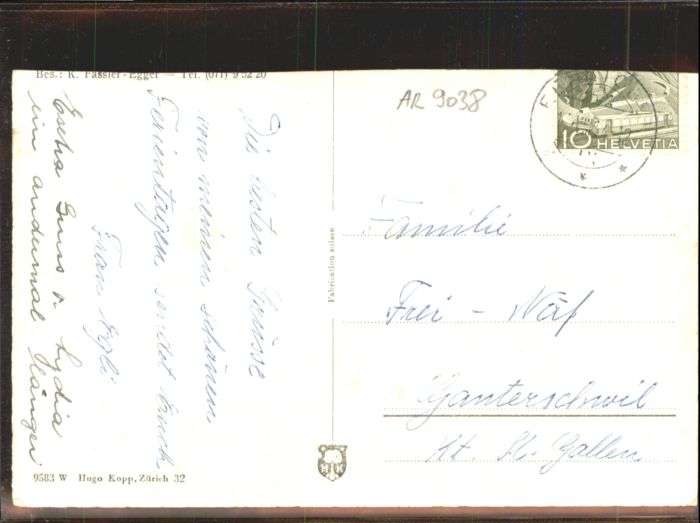 Bes.: K. Fässler-Egger — Tel. (071) 9 52 20
Die besten Grüsse
von meinen schönen
Ferientagen sendet Euch
Frau Egli
Extra Gruss v. Lydia
ein andermal länger
AR 9038
10 HELVETIA
Familie
Frei - Näf
Ganterschwil
Kt. St. Gallen
Fabrication suisse
9583 W Hugo Kopp, Zürich 32